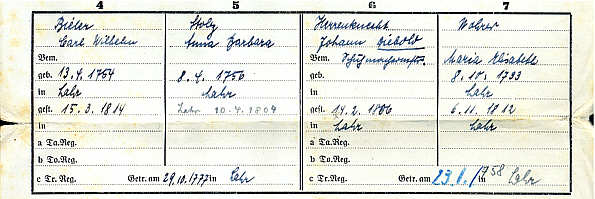 4 5 6 7
Bieler Stolz Herrenknecht Wohrer
Carl Wilhelm Anna Barbara Johann Diebold
Bem. Bem. Schuhmachermstr. Maria Elisabeth
geb. 13.4.1754 8.4.1750 geb. 8.10.1733
in Lahr Lahr in Lahr
gest. 15.3.1814 Lahr 10.4.1809 gest. 14.2.1806 6.11.1812
in in Lahr Lahr
a Ta.Reg. a Ta.Reg.
b To.Reg. b To.Reg.
c Tr.Reg. Getr. am 29.10.1777 in Lahr c Tr.Reg. Getr. am 23.1./1758 in Lahr